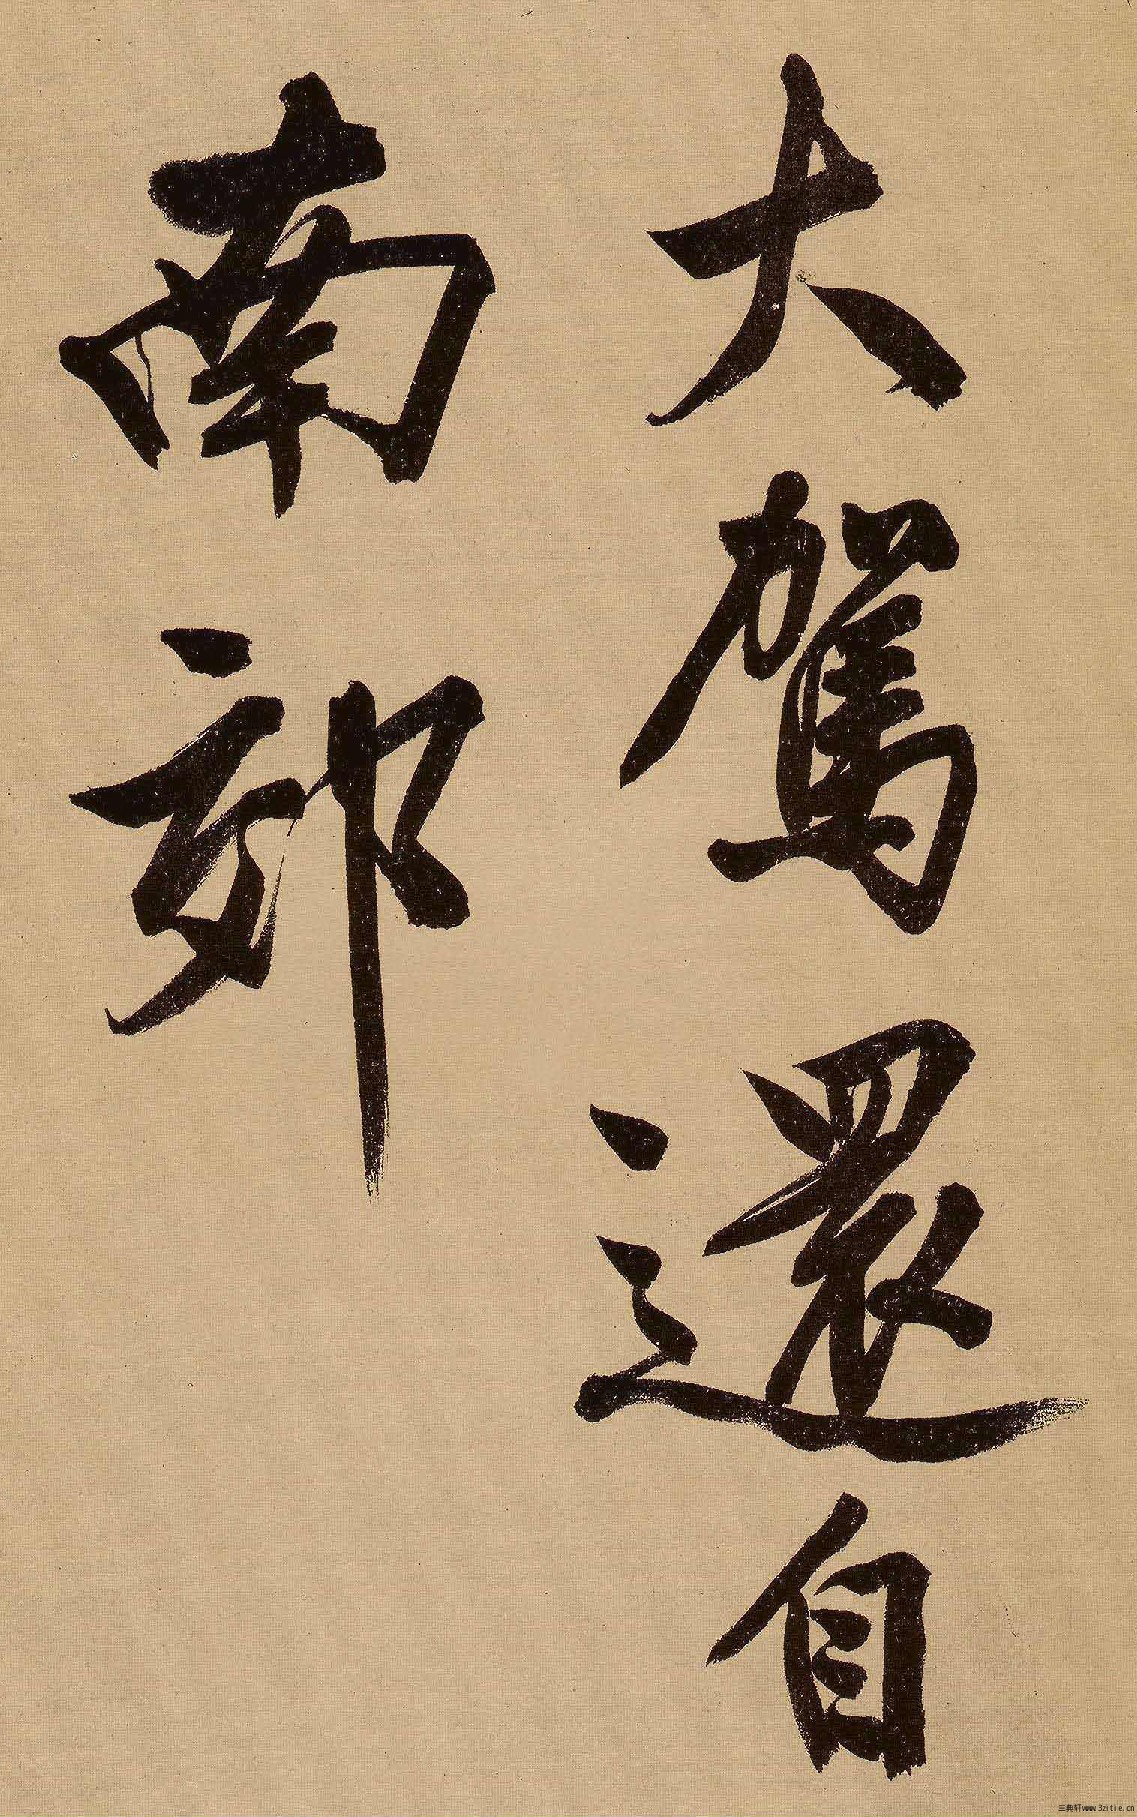 大駕還自
南郊
三典轩www.3zitie.cn